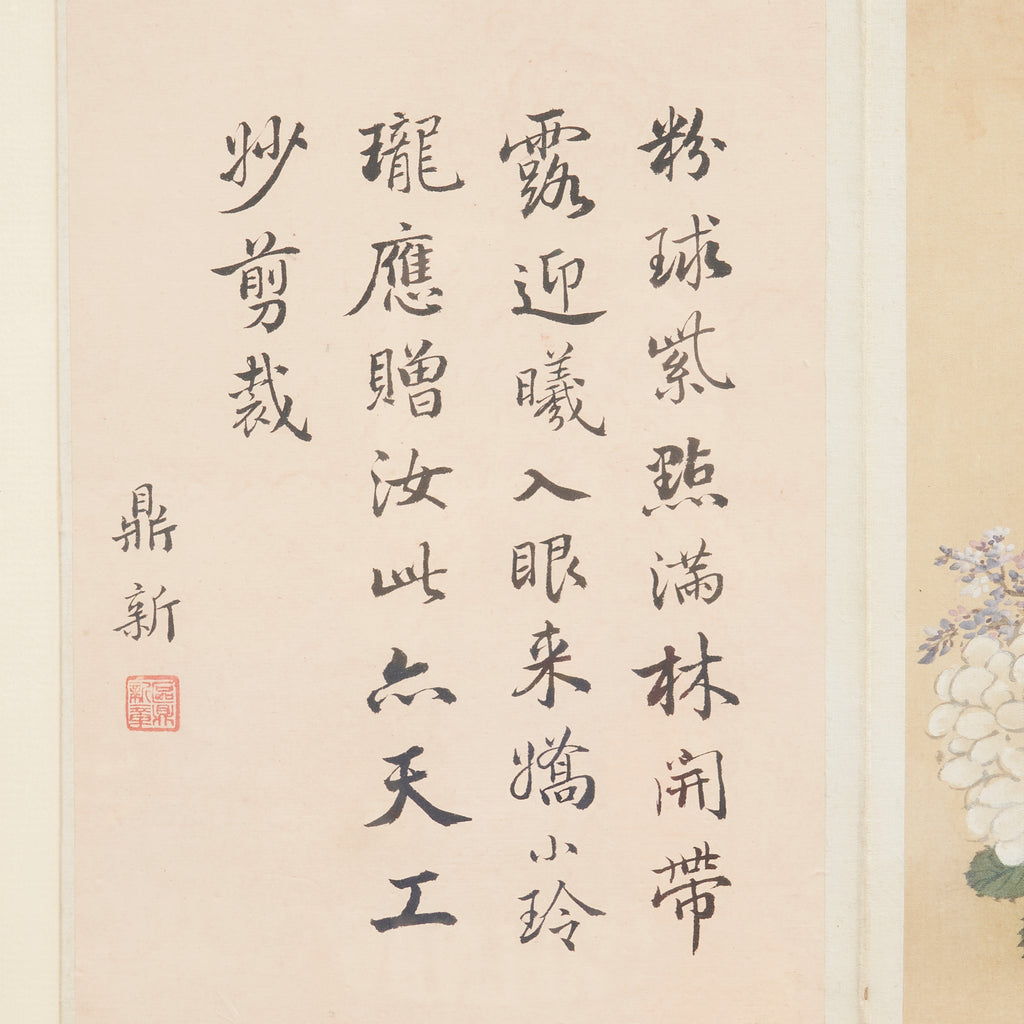 粉球紫點滿林開帶
露迎曦入眼来嬌小玲
瓏應贈汝此亦天工
妙剪裁
鼎新